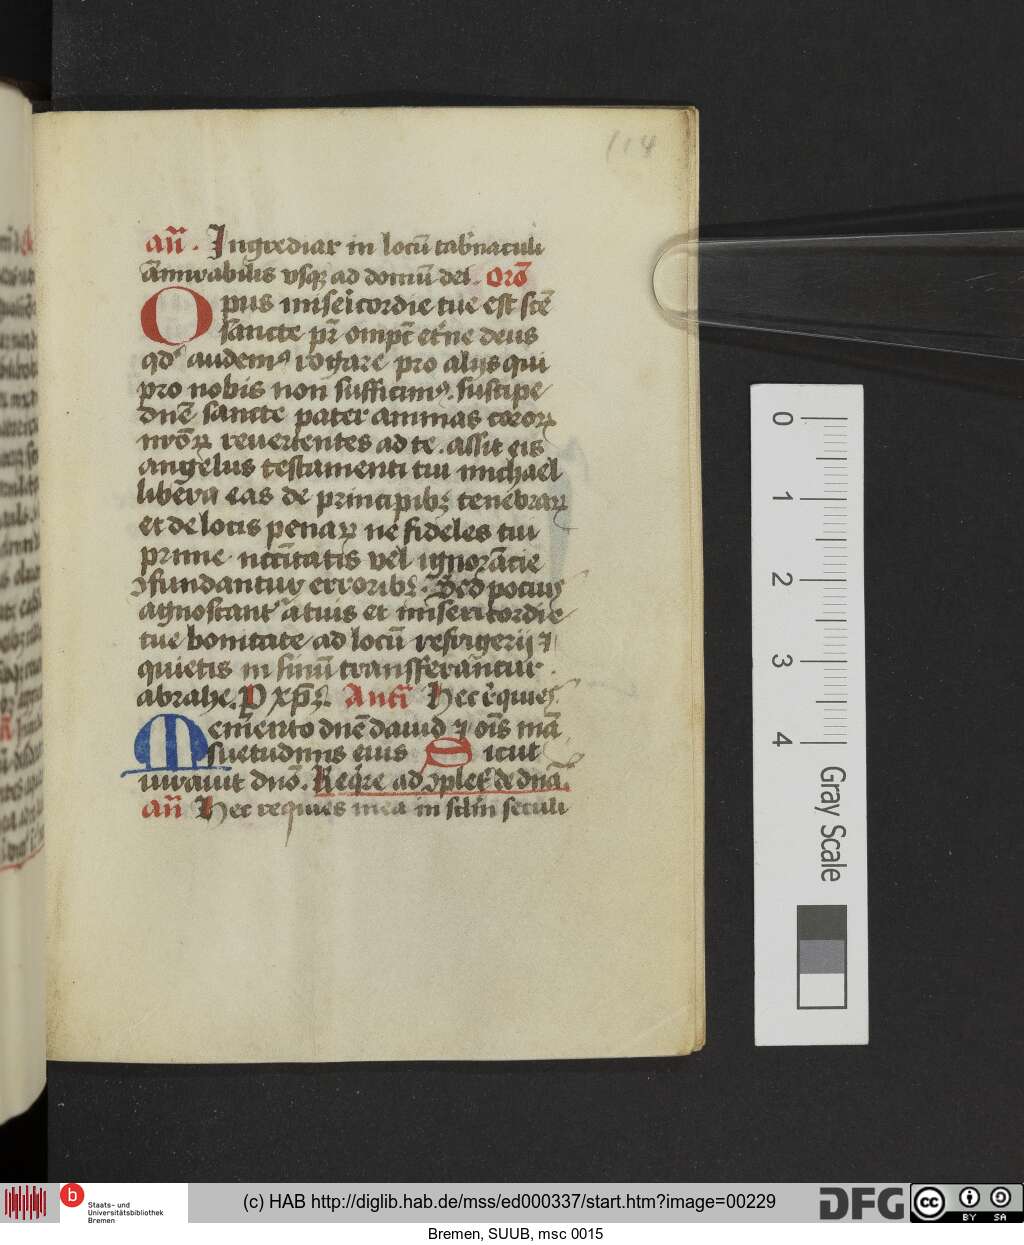 114
an̄. Ingrediar in locū tab'naculi
āmirabilis vsq; ad domū dei. Orō
Opus misericordie tue est scē
sancte pr̄ ompc̄ et'ne deus
qd' audem' rogare pro alijs qui
pro nobis non sufficim'. suscipe
dn̄e sancte pater animas
nr̄oꝝ reuertentes ad te. assit eis
angelus testamenti tui michael
libera eas de principibꝫ tenebraꝝ
et de locis penaꝝ ne fideles tui
prime vel ignorācie
ꝯfundantur erroribꝫ. Sed pocius
agnoscant' a tuis et misericordie
tue bonitate ad locū refrigerij ⁊
quietis in sinū transfferantur
abrahe. P xp̄ꝫ. Antī Hec requies
Memento dn̄e dauid ⁊ oīs mā
suetudinis eius Sicut
iurauit dn̄o. Reqre ad ꝯplet' de dn̄a.
an̄ Hec requies mea in sclm̄ seculi
0
1
2
3
4
Gray Scale
b
Staats- und
Universitätsbibliothek
Bremen
(c) HAB http://diglib.hab.de/mss/ed000337/start.htm?image=00229
DFG
cc
BY SA
Bremen, SUUB, msc 0015